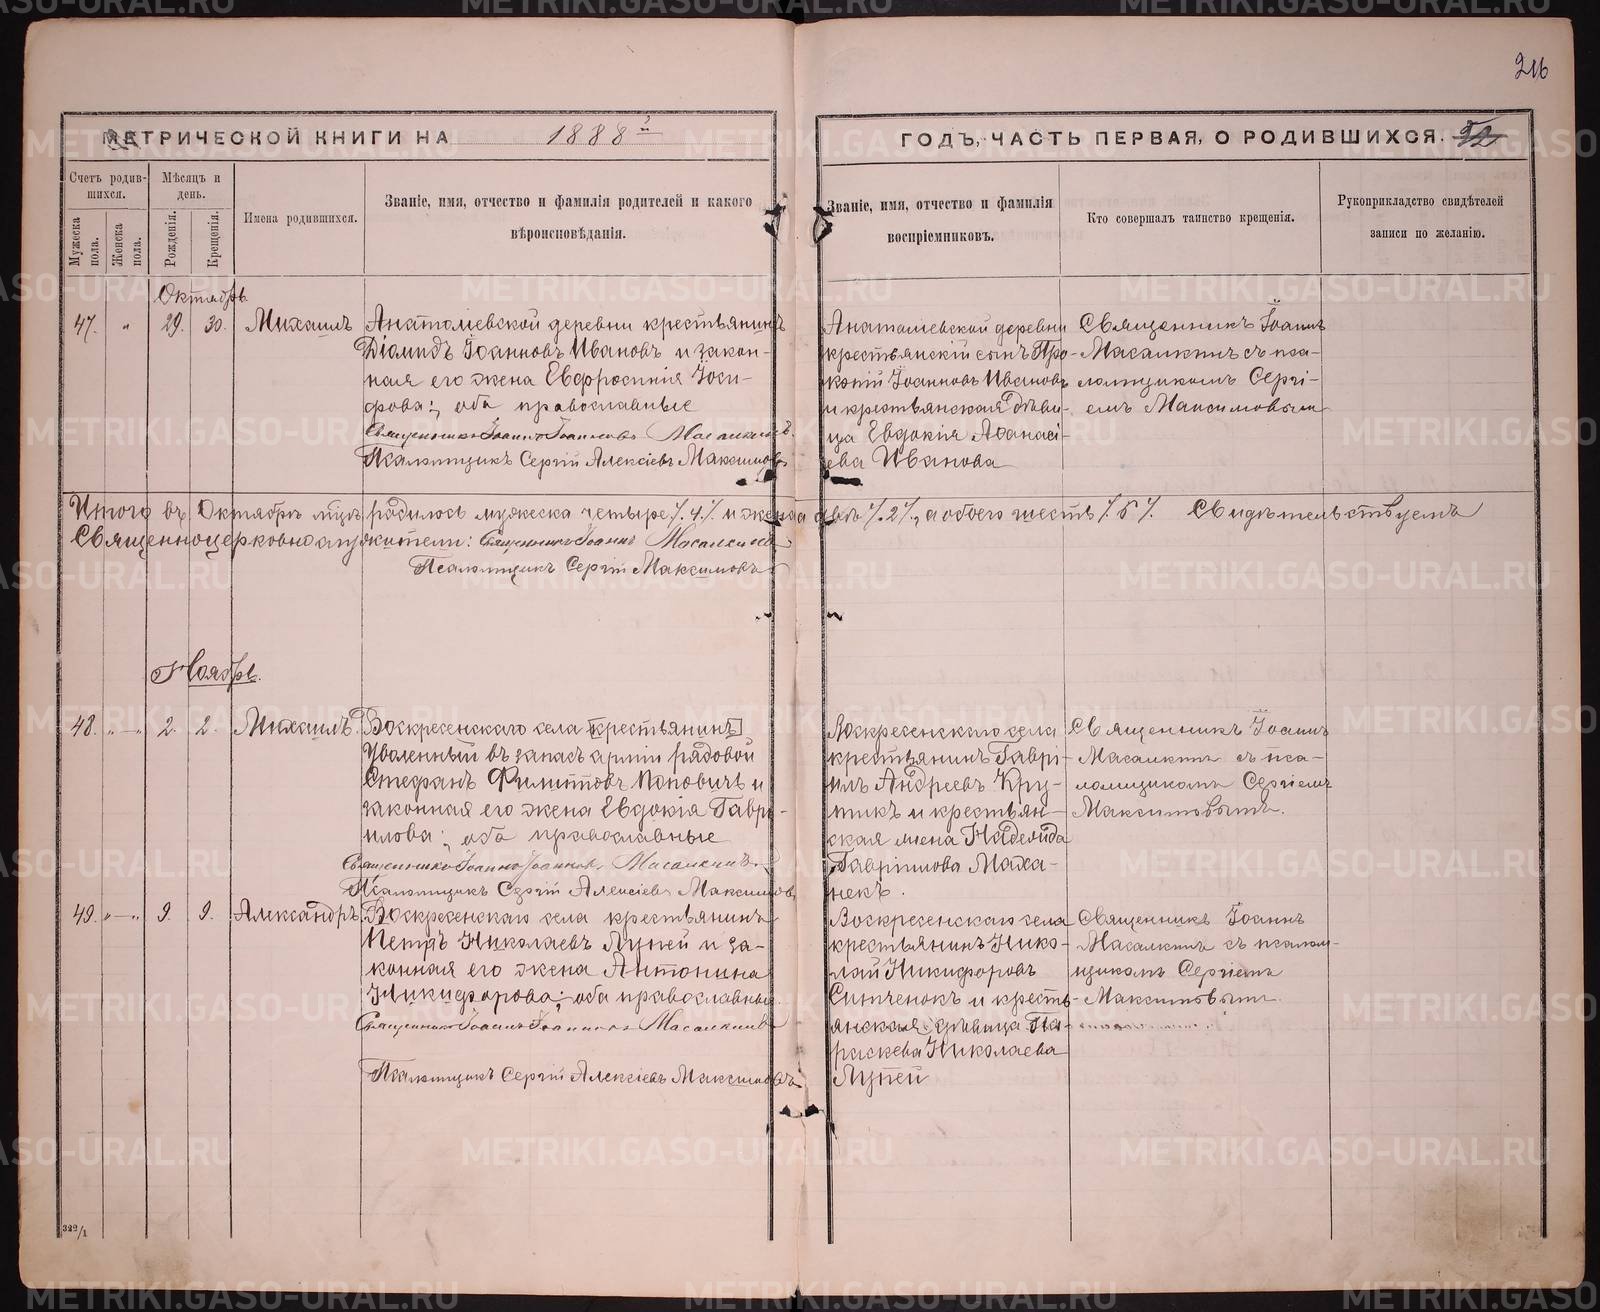 216
МЕТРИЧЕСКОЙ КНИГИ НА 1888й
ГОДЪ, ЧАСТЬ ПЕРВАЯ, О РОДИВШИХСЯ.
Счетъ родившихся.
Мужеска пола.
Женска пола.
Мѣсяцъ и день.
Рожденія.
Крещенія.
Имена родившихся.
Званіе, имя, отчество и фамилія родителей и какого
вѣроисповѣданія.
Званіе, имя, отчество и фамилія
воспріемниковъ.
Кто совершалъ таинство крещенія.
Рукоприкладство свидѣтелей
записи по желанію.
Октябрь
47. " 29. 30. Михаилъ
Анатоліевской деревни крестьянинъ
Діомидъ Іоанновъ Ивановъ и закон-
ная его жена Евфросинія Іоси-
фова; оба православные
Священникъ Іоаннъ Іоанновъ Масалкинъ.
Псаломщикъ Сергій Алексіевъ Максимовъ
Анатоліевской деревни
крестьянскій сынъ Про-
копій Іоанновъ Ивановъ
и крестьянская дѣви-
ца Евдокія Аѳанасі-
ева Иванова
Священникъ Іоаннъ
Масалкинъ съ пса-
ломщикомъ Сергі-
емъ Максимовымъ
Итого въ Октябрѣ мцѣ родилось мужеска четыре /.4./. и женска двѣ /.2/., а обоего шесть /.6./. Свидѣтельствуемъ
Священноцерковнослужители: Священникъ Іоаннъ Масалкинъ
Псаломщикъ Сергій Максимовъ
Ноябрь.
48. "—" 2. 2. Михаилъ.
Воскресенскаго села [крестьянинъ]
Уволенный въ запасъ арміи рядовой
Стефанъ Филипповъ Поповичъ и
законная его жена Евдокія Гаврі-
илова; оба православные
Священникъ Іоаннъ Іоанновъ Масалкинъ.
Псаломщикъ Сергій Алексіевъ Максимовъ
Воскресенскаго села
крестьянинъ Гаврі-
илъ Андреевъ Кру-
пикъ и крестьян-
ская жена Надежда
Гавріилова Маха-
некъ.
Священникъ Іоаннъ
Масалкинъ съ пса-
ломщикомъ Сергіемъ
Максимовымъ.
49. "—" 9. 9. Александръ.
Воскресенскаго села крестьянинъ
Петръ Николаевъ Лупей и за-
конная его жена Антонина
Никифорова; оба православные.
Священникъ Іоаннъ Іоанновъ Масалкинъ
Псаломщикъ Сергій Алексіевъ Максимовъ
Воскресенскаго села
крестьянинъ Нико-
лай Никифоровъ
Ситченокъ и кресть-
янская дѣвица Па-
раскева Николаева
Лупей
Священникъ Іоаннъ
Масалкинъ съ псалом-
щикомъ Сергіемъ
Максимовымъ.
322/1
METRIKI.GASO-URAL.RU